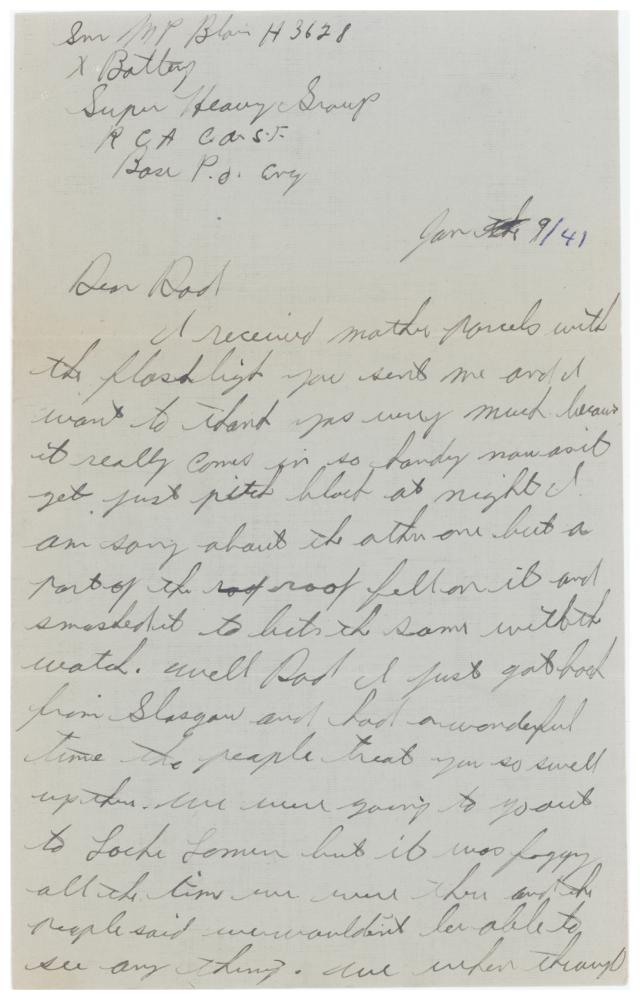 Gnr M P Blair H3628
X Battery
Super Heavy Group
R C A C.A.S.F.
Base P.O. Eng
Jan 9/41
Dear Dad
I received mother parcels with
the flashligh you sent me and I
want to thank you very much because
it really comes in so handy now as it
get just pitch black at night I
am sorry about the other one but a
part of the roof fell on it and
smashed it to bits the same with the
watch. well Dad I just got back
from Glasgow and had a wonderful
time the people treat you so swell
up there. we were going to go out
to Loche Lomen but it was foggy
all the time we were there and the
people said we wouldent be able to
see any thing. we when through